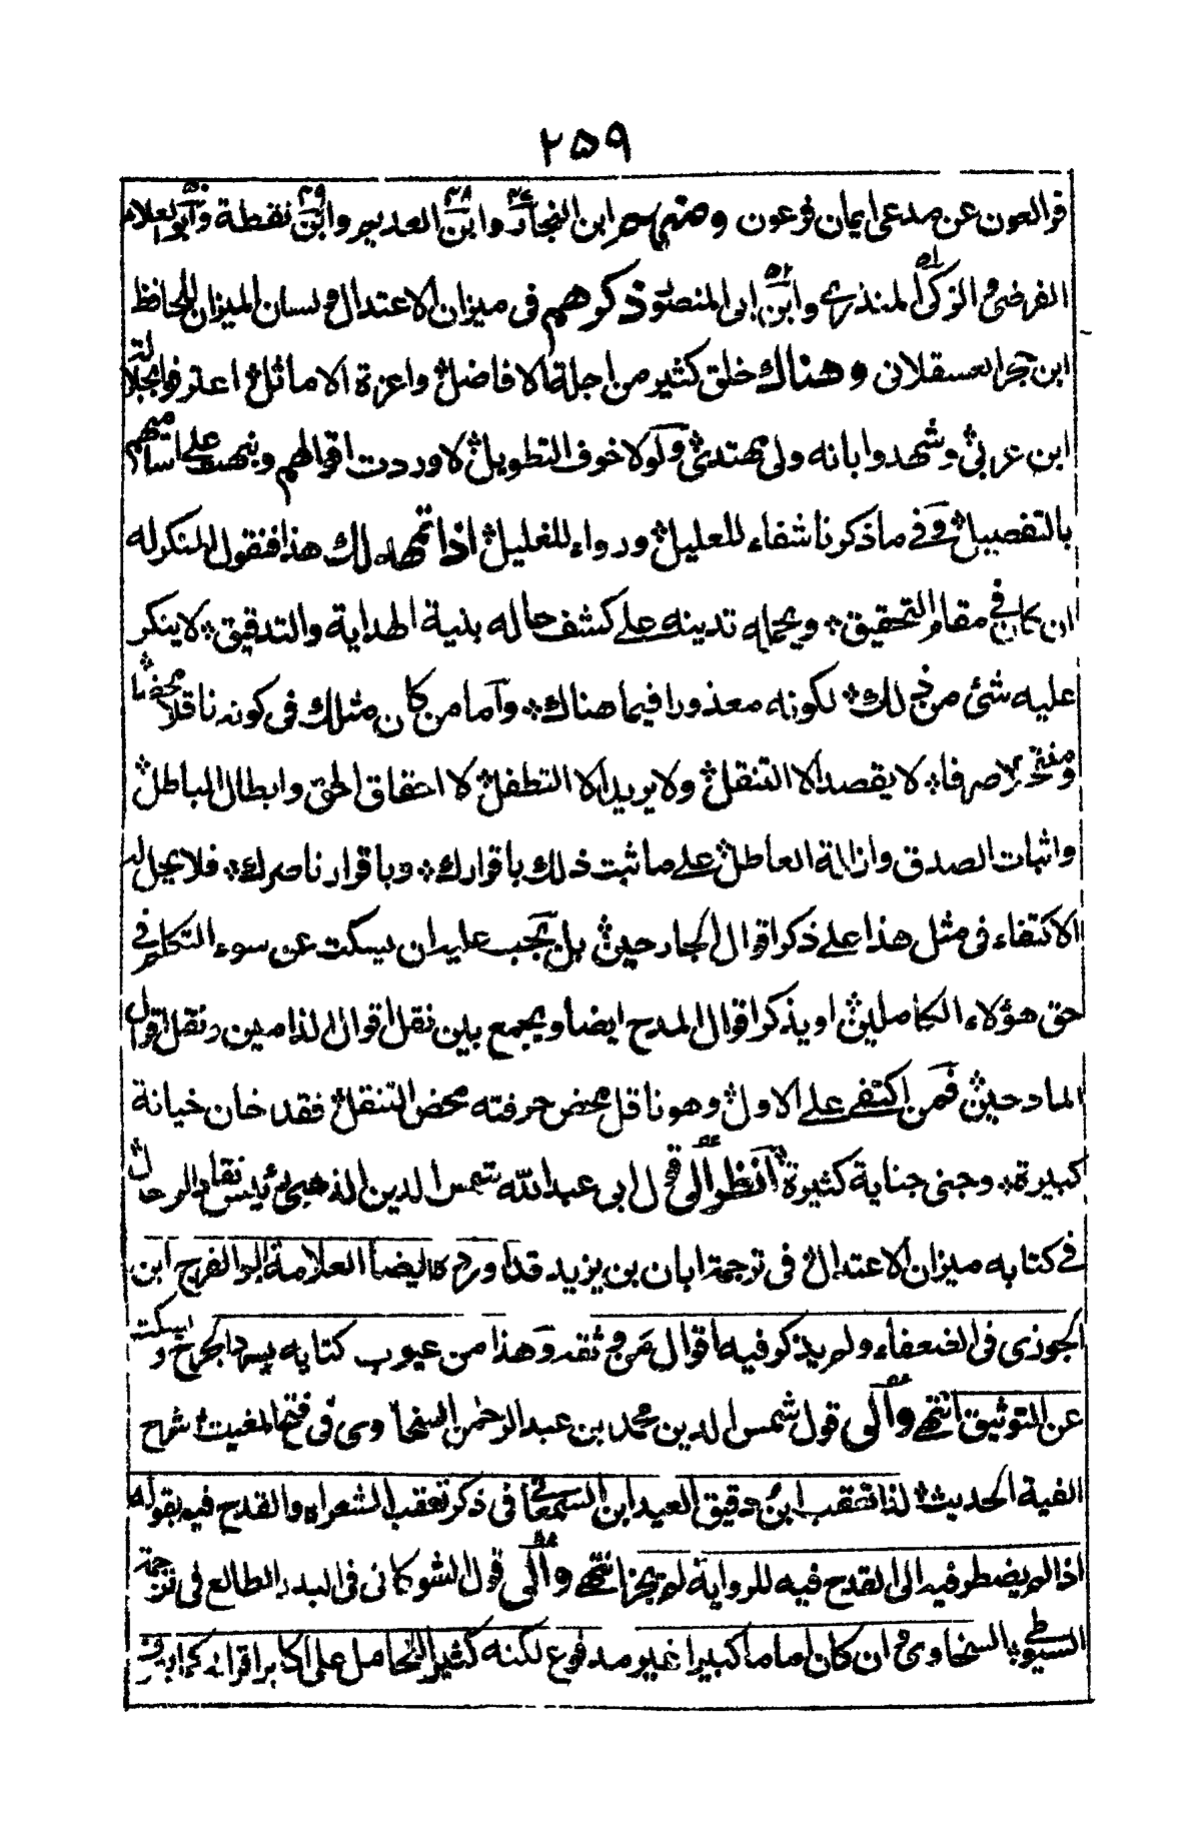 ٢٥٩
فر العون عن مدعى ايمان فرعون ومنهم ابن النجار وابن العديم وابن نقطة وابو العلاء
الفرضى والزكى المنذرى وابن ابى المنصور ذكرهم فى ميزان الاعتدال ولسان الميزان للحافظ
ابن حجر العسقلانى وهناك خلق كثير من اجلة الافاضل واعزة الاماثل اعترفوا بجلالة
ابن عربى وشهدوا بانه ولى مهتدى ولولا خوف التطويل لاوردت اقوالهم ونبهت على اسمائهم
بالتفصيل وفى ما ذكرنا شفاء للعليل ورواء للغليل اذا تمهد لك هذا فنقول المنكر له
ان كان فى مقام التحقيق ويحمله تدينه على كشف حاله بنية الهداية والتدقيق لا ينكر
عليه شئ من ذلك لكونه معذورا فيما هناك وأما من كان مثلك فى كونه ناقلا محضا
ومنتحلا صرفا لا يقصد الا التنقل ولا يريد الا التطفل لا احقاق الحق وابطال الباطل
واثبات الصدق وازالة العاطل على ما ثبت ذلك باقرارك وباقرار ناصرك فلا يحل له
الاكتفاء فى مثل هذا على ذكر اقوال الجارحين بل يجب عليه ان يسكت عن سوء التكلم فى
حق هؤلاء الكاملين او يذكر اقوال المدح ايضا ويجمع بين نقل اقوال الذامين ونقل اقوال
المادحين فمن اكتفى على الاول وهو ناقل محض حرفته محض التنقل فقد خان خيانة
كبيرة وجنى جناية كثيرة انظر الى قول ابى عبد الله شمس الدين الذهبى رئيس نقاد الرجال
فى كتابه ميزان الاعتدال فى ترجمة ابان بن يزيد قد اورده ايضا العلامة ابو الفرج ابن
الجوزى فى الضعفاء ولم يذكر فيه اقوال من وثقه وهذا من عيوب كتابه يسرد الجرح ويسكت
عن التوثيق انتهى والى قول شمس الدين محمد بن عبد الرحمن السخاوى فى فتح المغيث شرح
الفية الحديث لذا تعقب ابن دقيق العيد ابن السمعانى فى ذكر تعقب الشعراء والقدح فيه بقوله
اذا لم يضطر فيه الى القدح فيه للرواية لم يجز انتهى والى قول الشوكانى فى البدر الطالع فى ترجمة
السيوطى السخاوى وان كان اماما كبيرا غير مدفوع لكنه كثير التحامل على اكابر اقرانه كما